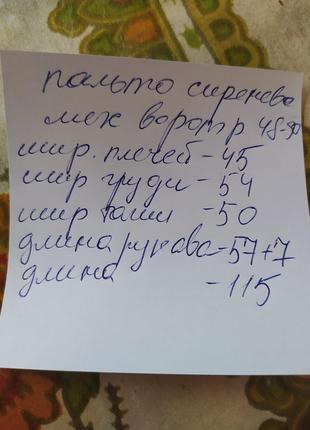 пальто сиренево
мех ворот р 48-50
шир. плечей - 45
шир груди - 54
шир талии - 50
длина рукава - 57+7
длина - 115